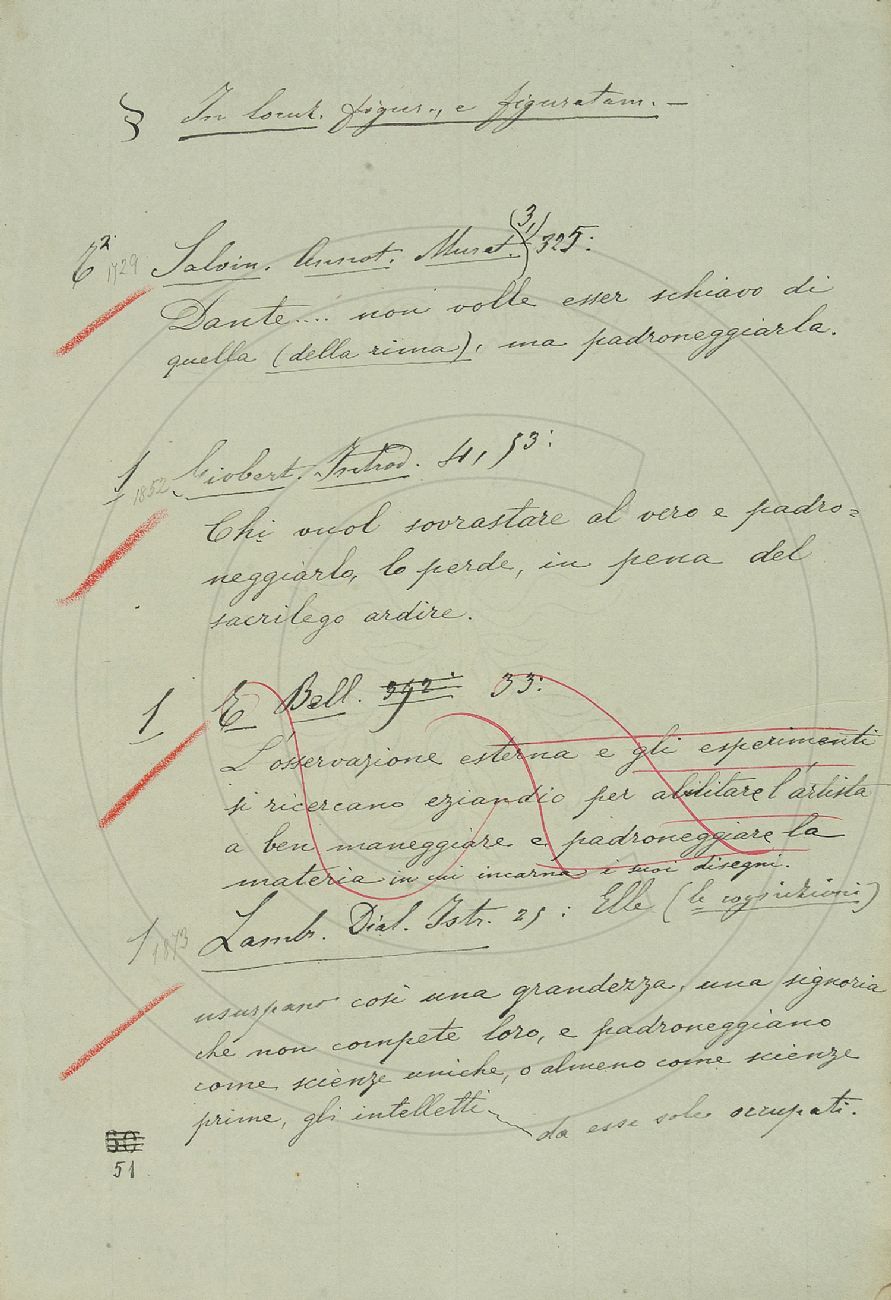 § In locuz. figur., e figuratam. –
(3,)
C² 1729 Salvin. Annot. Murat. 325:
Dante.... non volle esser schiavo di
quella (della rima), ma padroneggiarla.
1 1852 Giobert. Introd. 4, 53:
Chi vuol sovrastare al vero e padro=
neggiarlo, lo perde, in pena del
sacrilego ardire.
1 E Bell. 392: 33:
L'osservazione esterna e gli esperimenti
si ricercano eziandio per abilitare l'artista
a ben maneggiare e padroneggiare la
materia in cui incarna i suoi disegni.
1 1873 Lambr. Dial. Istr. 25: Elle (le cognizioni)
usurpano così una grandezza, una signoria
che non compete loro, e padroneggiano
come scienze uniche, o almeno come scienze
prime, gli intelletti
da esse sole occupati.
50
51